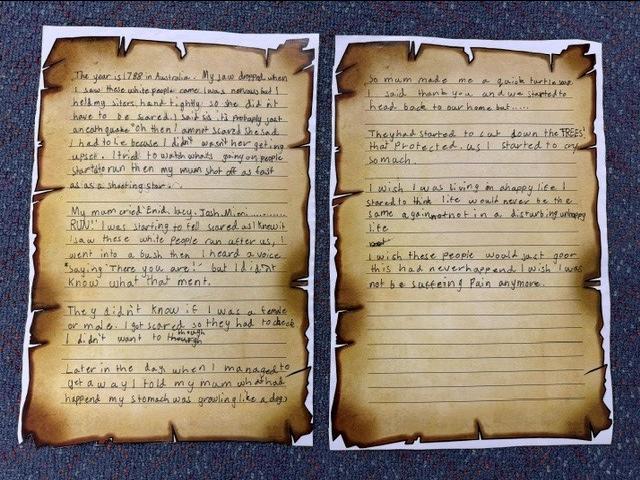 The year is 1788 in Australia. My jaw dropped when
I saw these white people come I was nervous but I
held my siters hand tightly so she did n't
have to be scared. I said sis it's protaply just
an eath quake "Oh then I am not scared she said
I had to lie because I didn't want her getting
upset. I tried to watch whats going on people
started to run then my mum shot off as fast
as as a shooting star.
My mum cried "Enid, lacy, Josh, Mimi.........
RUN!" I was starting to fell scared as I knew it
I saw these white people run after us, I
went into a bush then I heard a voice
"Saying "There you are!" but I didn't
know what that ment.
They didn't know if I was a female
or male. I got scared so they had to check
I didn't want to though
though
Later in the day when I managed to
get a way I told my mum what had
happend my stomach was growling like a dog
So mum made me a quick turtle
I said thank you and we started to
head back to our home but.....
They had started to cut down the TREES
that protected us I started to cry
so mach.
I wish I was living in a happy life I
stared to think life would never be the
same again not in a disturbing unhappy
life
I wish these people would just go or
this had never happend I wish I was
not be suffeing Pain anymore.